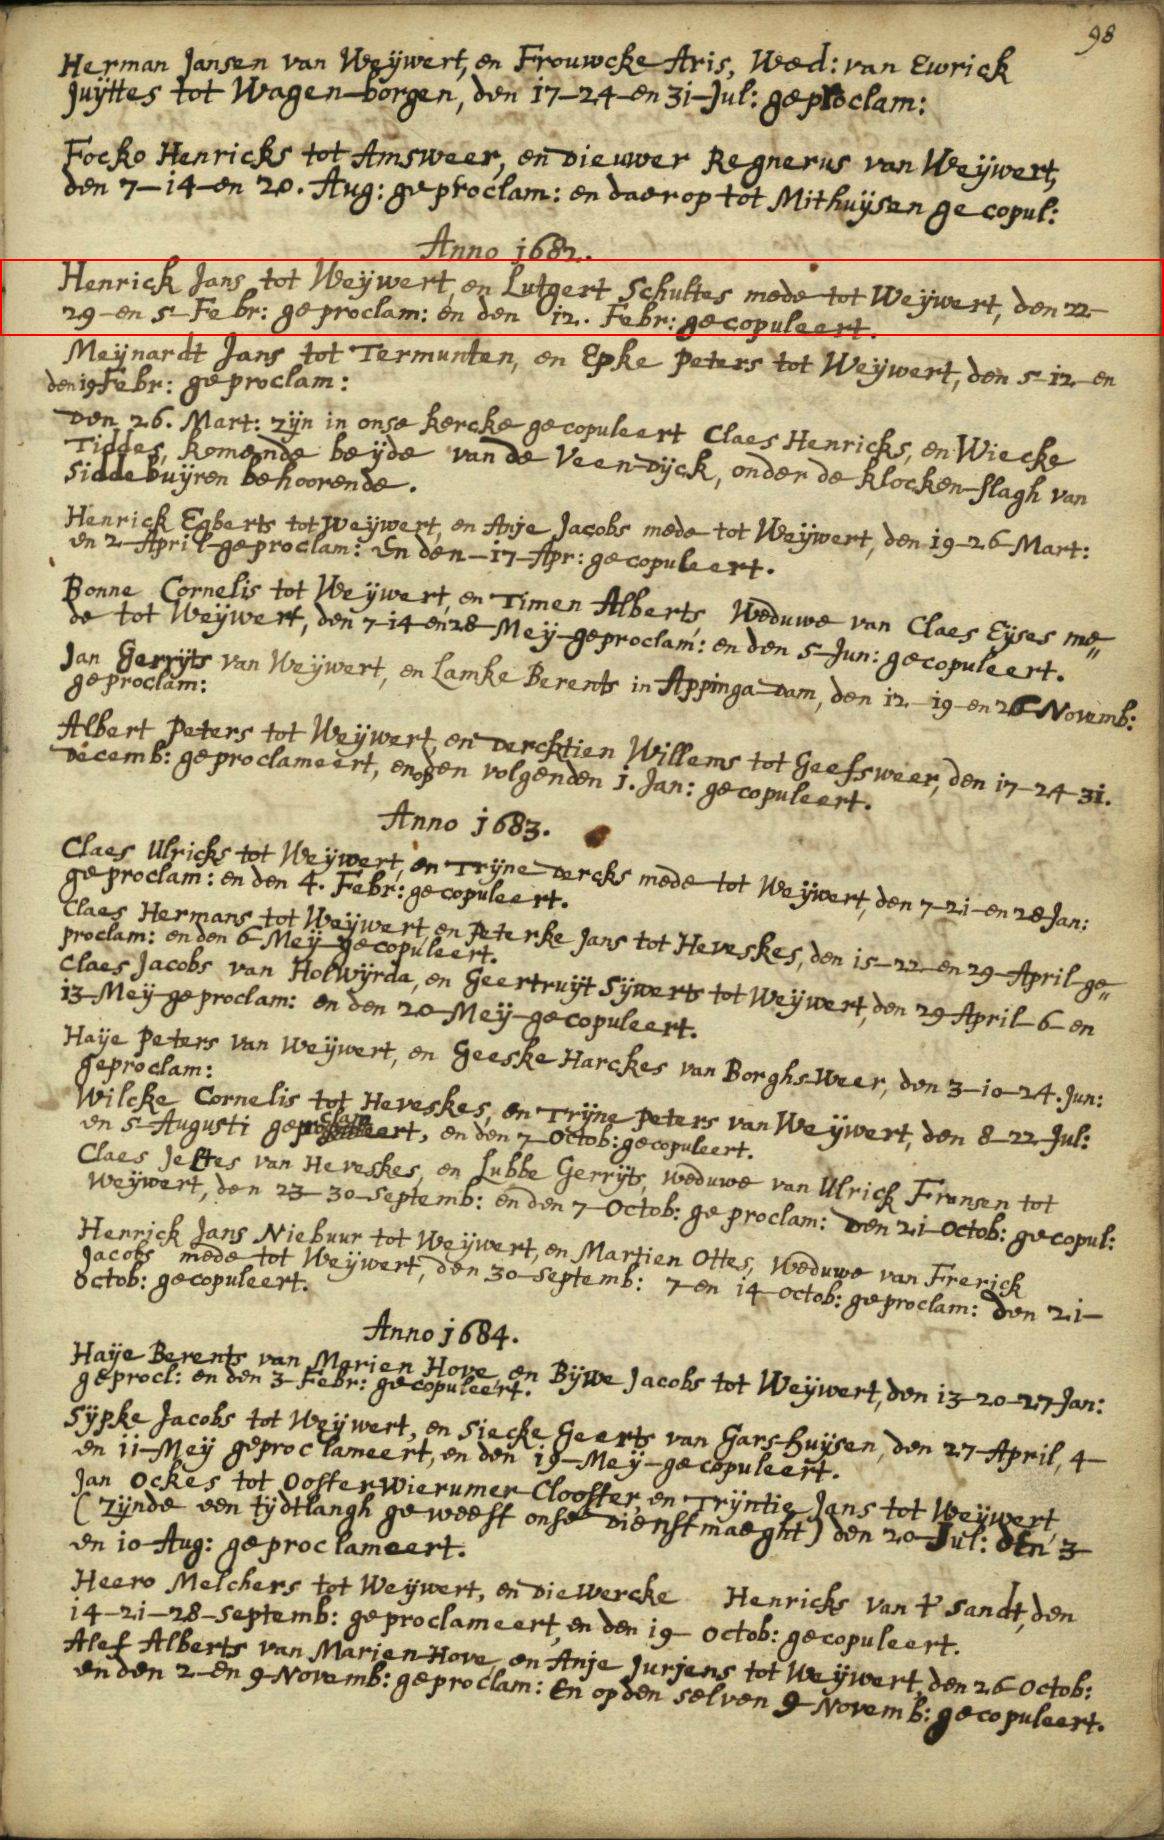 98
Herman Jansen van Weÿwert, en Frouwcke Aris, Wed: van Ewrick
Juÿttes tot Wagen-borgen, den 17-24-en 31-Jul: geproclam:
Focko Henricks tot Amsweer, en Dieuwer Regnerus van Weÿwert,
den 7-14-en 20. Aug: geproclam: en daer op tot Mithuÿsen gecopul:
Anno 1682.
Henrick Jans tot Weÿwert, en Lutgert Schultes mede tot Weÿwert, den 22-
29-en 5-Febr: geproclam: en den 12. Febr: gecopuleert.
Meÿnardt Jans tot Termunten, en Epke Peters tot Weÿwert, den 5-12-en
den 19 Febr: geproclam:
Den 26. Mart: zÿn in onse kercke gecopuleert Claes Henricks, en Wiecke
Tiddes, komende beÿde van de Veen-Dÿck, onder de klocken-slagh van
Siddebuÿren behoorende.
Henrick Egberts tot Weÿwert, en Anje Jacobs mede tot Weÿwert, den 19-26-Mart:
en 2-April-geproclam: En den-17-Apr: gecopuleert.
Bonne Cornelis tot Weÿwert, en Timen Alberts, Weduwe van Claes Eÿses me„
de tot Weÿwert, den 7-14-en 28-Meÿ-geproclam: en den 5-Jun: gecopuleert.
Jan Gerrÿts van Weÿwert, en Lamke Berents in Appinga-Dam, den 12-19-en 26-Novemb:
geproclam:
Albert Peters tot Weÿwert, en Dercktien Willems tot Geefsweer, den 17-24-31.
Decemb: geproclameert, en op den volgenden 1. Jan: gecopuleert.
Anno 1683.
Claes Ulricks tot Weÿwert, en Trÿne Dercks mede tot Weÿwert, den 7-21-en 28-Jan:
geproclam: en den 4. Febr: gecopuleert.
Claes Hermans tot Weÿwert, en Peterke Jans tot Heveskes, den 15-22-en 29-April-ge„
proclam: en den 6-Meÿ-gecopuleert.
Claes Jacobs van Holwÿrda, en Geertruÿt Sÿwerts tot Weÿwert, den 29-April-6-en
13-Meÿ-geproclam: en den 20-Meÿ-gecopuleert.
Haÿe Peters van Weÿwert, en Geeske Harckes van Borghs-Weer, den 3-10-24. Jun:
geproclam:
Wilcke Cornelis tot Heveskes, en Trÿne Peters van Weÿwert, den 8-22-Jul:
en 5-Augusti geproclameert, en den 7-Octob: gecopuleert.
Claes Jeltes van Heveskes, en Lubbe Gerrÿts, weduwe van Ulrick Fransen tot
Weÿwert, den 23-30-Septemb: en den 7-Octob: geproclam: Den 21-Octob: gecopul:
Henrick Jans Niebuur tot Weÿwert, en Martien Ottes, Weduwe van Frerick
Jacobs mede tot Weÿwert, den 30-Septemb: 7-en 14-Octob: geproclam: Den 21-
Octob: gecopuleert.
Anno 1684.
Haÿe Berents van Marien Hove, en Bÿwe Jacobs tot Weÿwert, den 13-20-27-Jan:
geprocl: en den 3-Febr: gecopuleert.
Sÿpke Jacobs tot Weÿwert, en Siecke Geerts van Gars-huÿsen, den 27-April, 4-
en 11-Meÿ geproclameert, en den 19-Meÿ-gecopuleert.
Jan Ockes tot Ooster Wierumer Clooster, en Trÿntie Jans tot Weÿwert,
(zÿnde een tÿdtlangh geweest onse Dienstmaeght) den 20-Jul: den 3-
en 10-Aug: geproclameert.
Heero Melchers tot Weÿwert, en Diewercke Henricks van t' Sandt, den
14-21-28-Septemb: geproclameert, en den 19-Octob: gecopuleert.
Alef Alberts van Marien-Hove, en Anje Jurjens tot Weÿwert, den 26-Octob:
en den 2-en 9-Novemb: geproclam: En op den selven 9-Novemb: gecopuleert.